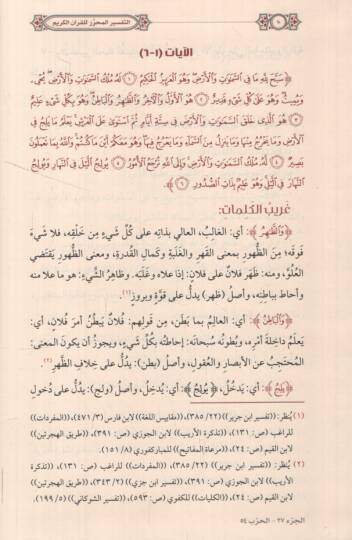 التفسير المحرَّر للقرآن الكريم
الآيات (١-٦)
﴿سَبَّحَ لِلَّهِ مَا فِي السَّمَاوَاتِ وَالْأَرْضِ وَهُوَ الْعَزِيزُ الْحَكِيمُ ۝١ لَهُ مُلْكُ السَّمَاوَاتِ وَالْأَرْضِ يُحْيِي
وَيُمِيتُ وَهُوَ عَلَى كُلِّ شَيْءٍ قَدِيرٌ ۝٢ هُوَ الْأَوَّلُ وَالْآخِرُ وَالظَّاهِرُ وَالْبَاطِنُ وَهُوَ بِكُلِّ شَيْءٍ عَلِيمٌ
۝٣ هُوَ الَّذِي خَلَقَ السَّمَاوَاتِ وَالْأَرْضَ فِي سِتَّةِ أَيَّامٍ ثُمَّ اسْتَوَى عَلَى الْعَرْشِ يَعْلَمُ مَا يَلِجُ فِي
الْأَرْضِ وَمَا يَخْرُجُ مِنْهَا وَمَا يَنْزِلُ مِنَ السَّمَاءِ وَمَا يَعْرُجُ فِيهَا وَهُوَ مَعَكُمْ أَيْنَ مَا كُنْتُمْ وَاللَّهُ بِمَا تَعْمَلُونَ
بَصِيرٌ ۝٤ لَهُ مُلْكُ السَّمَاوَاتِ وَالْأَرْضِ وَإِلَى اللَّهِ تُرْجَعُ الْأُمُورُ ۝٥ يُولِجُ اللَّيْلَ فِي النَّهَارِ وَيُولِجُ
النَّهَارَ فِي اللَّيْلِ وَهُوَ عَلِيمٌ بِذَاتِ الصُّدُورِ ۝٦﴾
غَريبُ الكَلِماتِ:
﴿وَالظَّاهِرُ﴾: أي: الغالِبُ، العالي بذاتِه على كُلِّ شَيءٍ مِن خَلْقِه، فلا شَيءَ
فوقَه؛ مِنَ الظُّهورِ بمعنى القَهرِ والغَلَبةِ وكَمالِ القُدرةِ، ومعنى الظُّهورِ يَقتَضي
العُلُوَّ، ومنه: ظَهَر فلانٌ على فُلانٍ: إذا علاه وغَلَبَه. وظاهِرُ الشَّيءِ: هو ما علا منه
وأحاط بباطِنِه، وأصلُ (ظهر) يدُلُّ على قوَّةٍ وبروزٍ(١).
﴿وَالْبَاطِنُ﴾: أي: العالِمُ بما بَطَن، مِن قَولِهم: فُلانٌ يَبطُنُ أمرَ فُلانٍ، أي:
يَعلَمُ داخِلةَ أمْرِه، وبُطونُه سُبحانَه: إحاطتُه بكُلِّ شَيءٍ، ويجوزُ أن يكونَ المعنى:
المُحتَجِبُ عن الأبصارِ والعُقولِ، وأصلُ (بطن): يدُلُّ على خِلافِ الظَّهرِ(٢).
﴿يَلِجُ﴾: أي: يَدخُلُ، ﴿يُولِجُ﴾: أي: يُدخِلُ، وأصلُ (ولج): يدُلُّ على دُخولِ
(١) يُنظر: ((تفسير ابن جرير)) (٢٢/ ٣٨٥)، ((مقاييس اللغة)) لابن فارس (٣/ ٤٧١)، ((المفردات))
للراغب (ص: ١٣١)، ((تذكرة الأريب)) لابن الجوزي (ص: ٣٩١)، ((طريق الهجرتين))
لابن القيم (ص: ٢٤)، ((مرعاة المفاتيح)) للمباركفوري (٨/ ١٥١).
(٢) يُنظر: ((تفسير ابن جرير)) (٢٢/ ٣٨٥)، ((المفردات)) للراغب (ص: ١٣١)، ((تذكرة
الأريب)) لابن الجوزي (ص: ٣٩١)، ((تفسير ابن جزي)) (٢/ ٣٤٣)، ((طريق الهجرتين))
لابن القيم (ص: ٢٤)، ((الكليات)) للكفوي (ص: ٥٩٣)، ((تفسير الشوكاني)) (٥/ ١٩٩).
الجزء ٢٧ - الحزب ٥٤